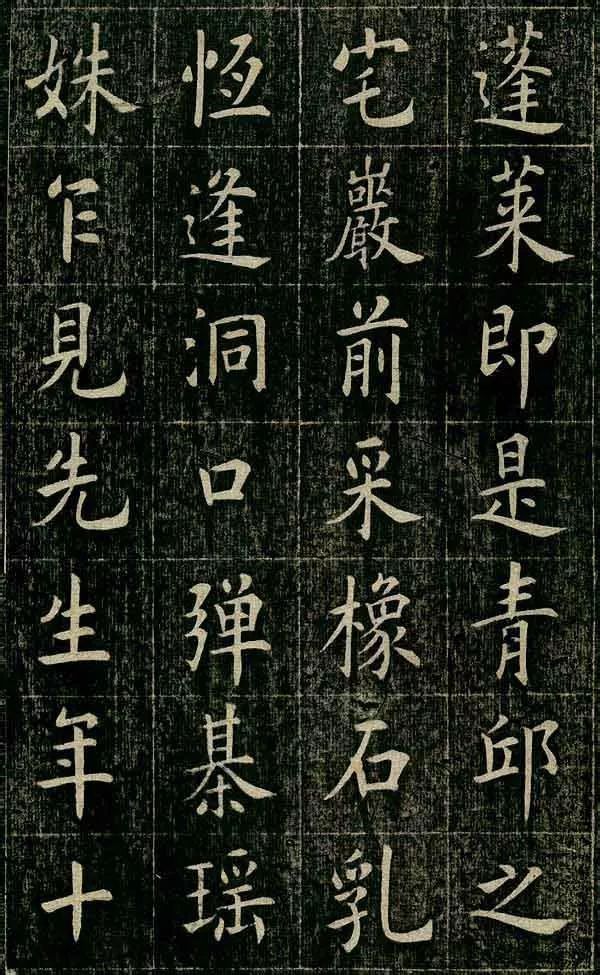 蓬莱即是青邱之
宅巖前采橡石乳
恆逢洞口弹棊瑶
姝乍見先生年十